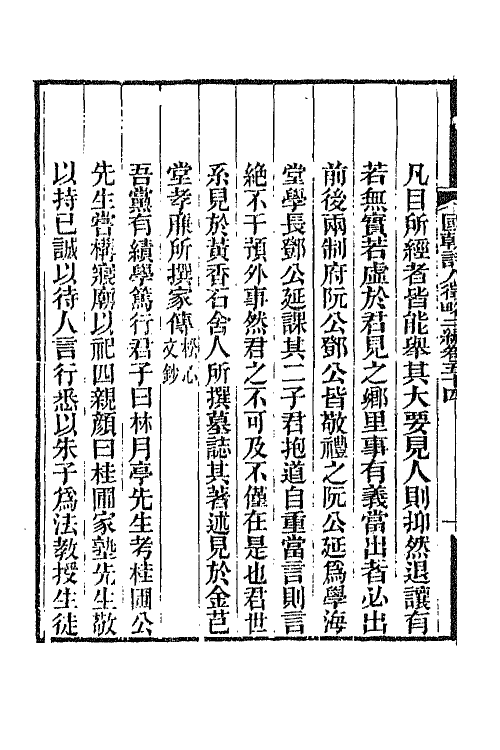 國朝詩人徵略二編卷五十四
凡目所經者皆能舉其大要見人則抑然退讓有
若無實若虛於君見之鄉里事有義當出者必出
前後兩制府阮公鄧公皆敬禮之阮公延為學海
堂學長鄧公延課其二子君抱道自重當言則言
絕不干預外事然君之不可及不僅在是也君世
系見於黃香石舍人所撰墓誌其著述見於金芑
堂孝廉所撰家傳松心文鈔
吾黨有績學篤行君子曰林月亭先生考桂圃公
先生嘗構寢廟以祀四親顏曰桂圃家塾先生敬
以持已誠以待人言行悉以朱子為法教授生徒